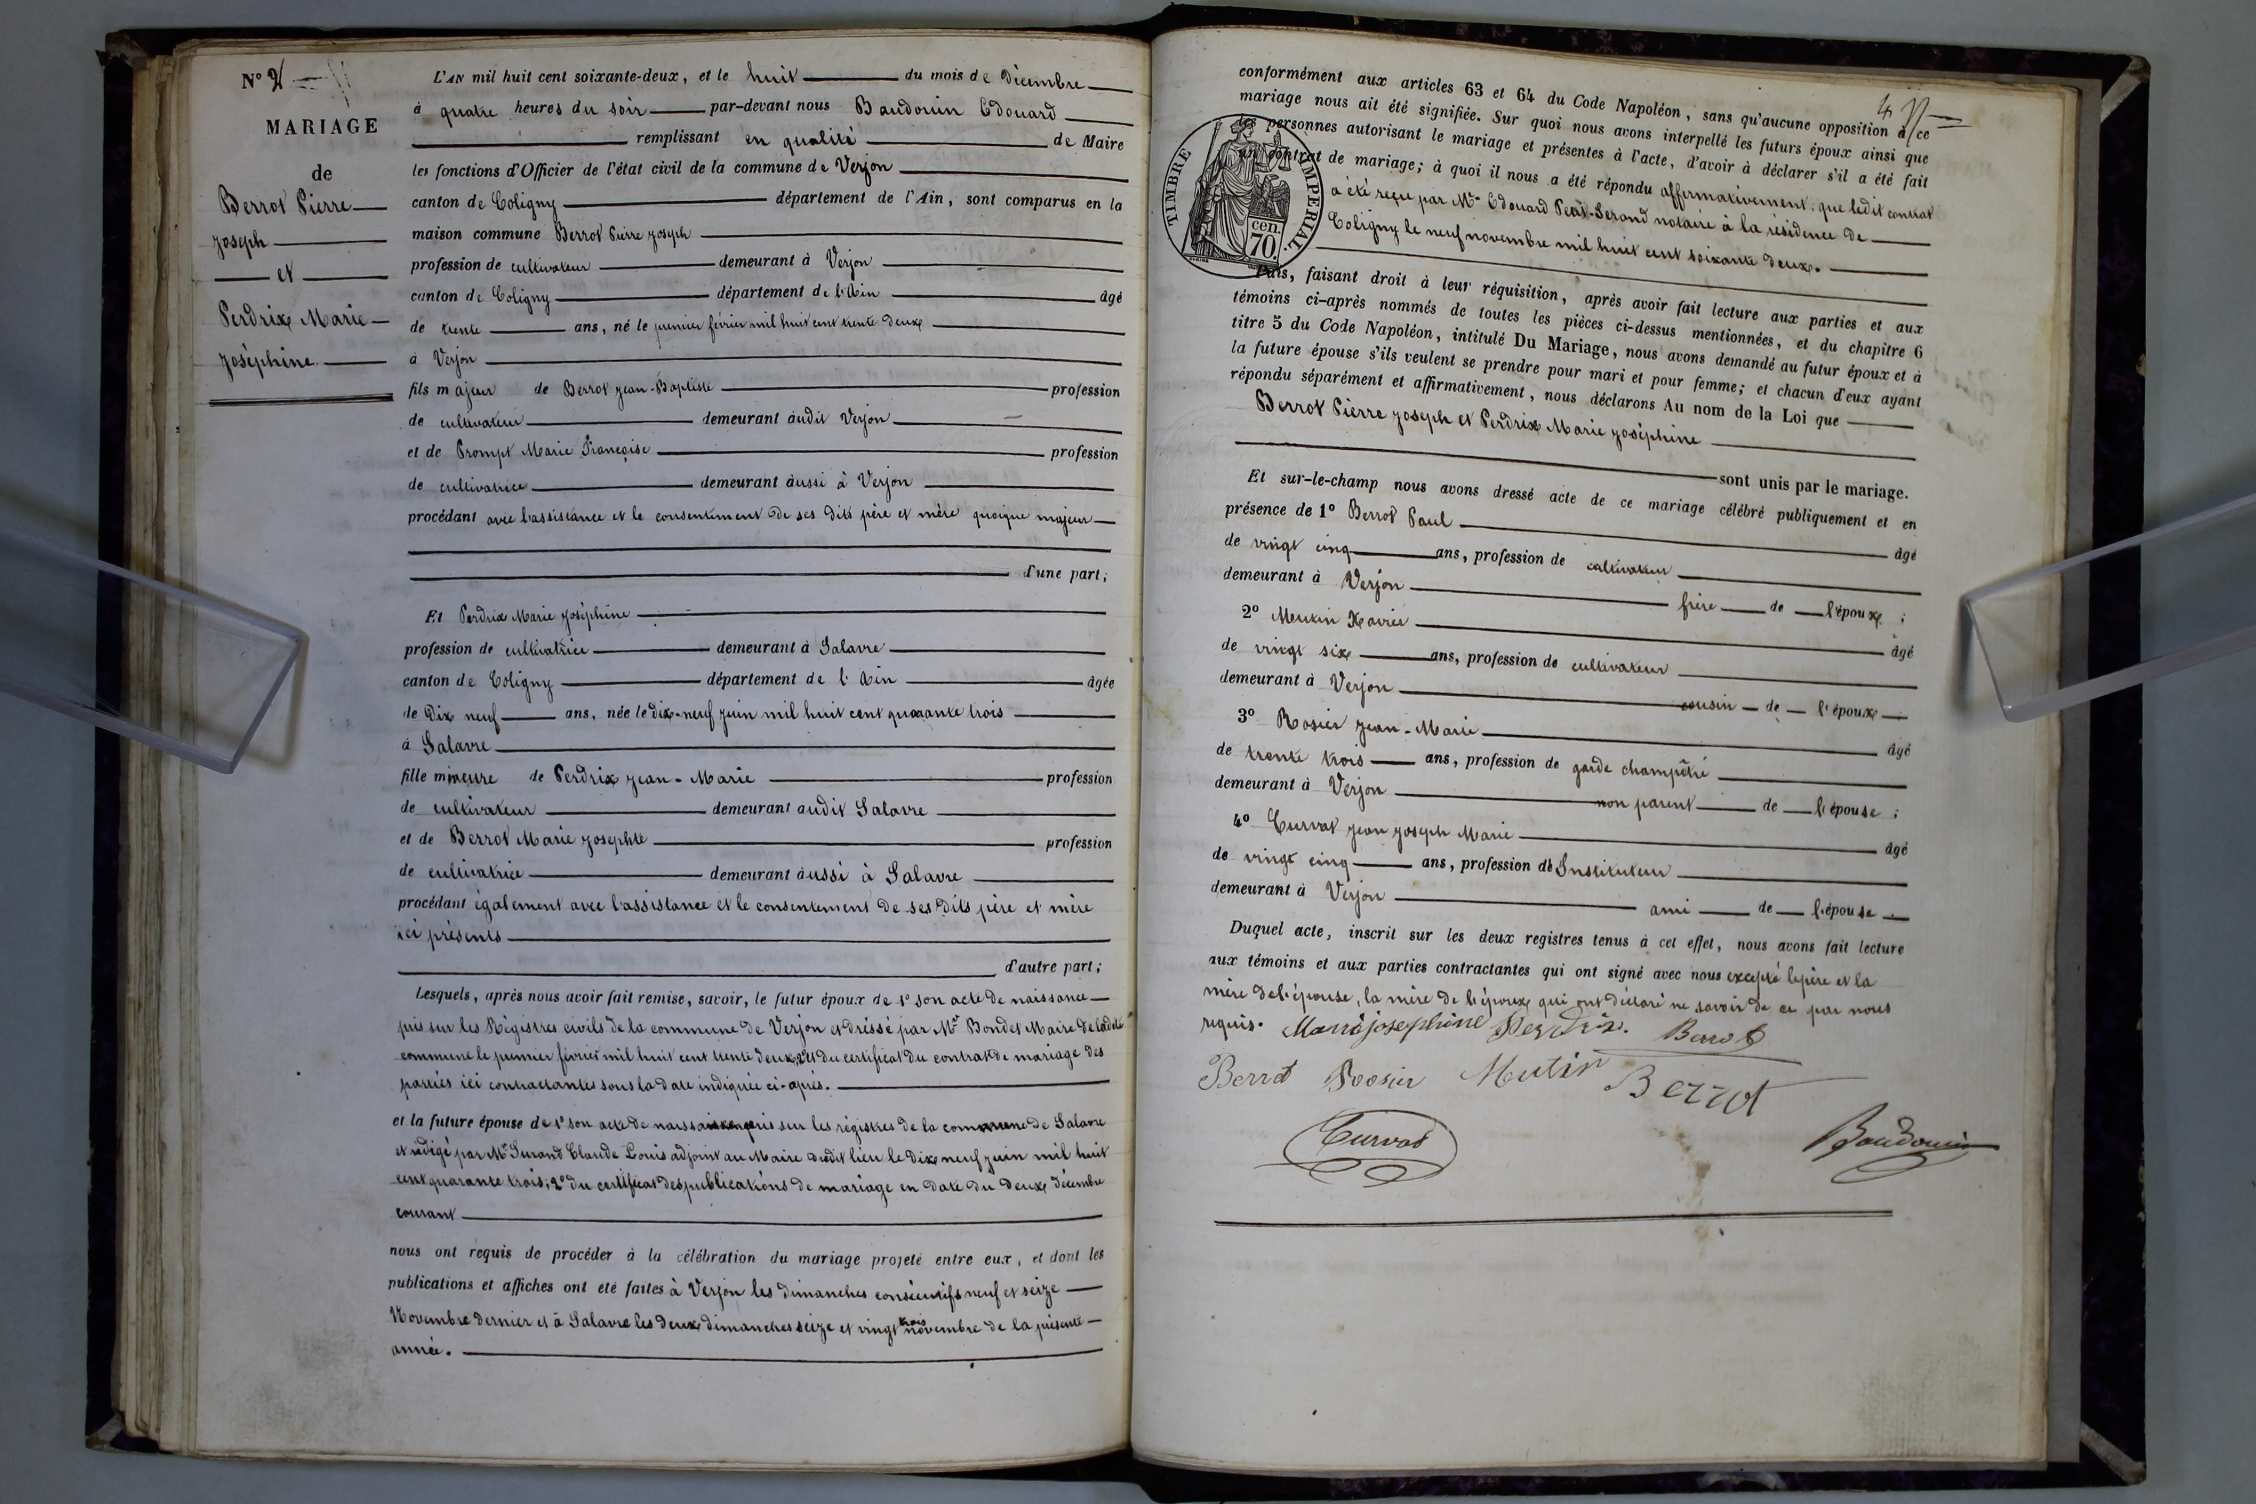 N° 2
MARIAGE
de
Berrot Pierre
Joseph
et
Perdrix Marie
Joséphine
L'AN mil huit cent soixante-deux, et le huit du mois de Décembre
à quatre heures du soir par-devant nous Baudouin Edouard
remplissant en qualité de Maire
les fonctions d'Officier de l'état civil de la commune de Verjon
canton de Coligny département de l'Ain, sont comparus en la
maison commune Berrot Pierre Joseph
profession de cultivateur demeurant à Verjon
canton de Coligny département de l'Ain âgé
de trente ans, né le premier février mil huit cent trente deux
à Verjon
fils majeur de Berrot Jean-Baptiste profession
de cultivateur demeurant audit Verjon
et de Prompt Marie Françoise profession
de cultivatrice demeurant aussi à Verjon
procédant avec l'assistance et le consentement de ses dits père et mère quoique majeur
d'une part;
Et Perdrix Marie Joséphine
profession de cultivatrice demeurant à Salavre
canton de Coligny département de l'Ain âgée
de Dix neuf ans, née le dix-neuf juin mil huit cent quarante trois
à Salavre
fille mineure de Perdrix Jean-Marie profession
de cultivateur demeurant audit Salavre
et de Berrot Marie Josephte profession
de cultivatrice demeurant aussi à Salavre
procédant également avec l'assistance et le consentement de ses dits père et mère
ici présents
d'autre part;
Lesquels, après nous avoir fait remise, savoir, le futur époux de 1° son acte de naissance
pris sur les Régistres civils de la commune de Verjon et dressé par Mr Bondet Maire de ladite
commune le premier février mil huit cent trente deux, 2° et du certificat du contrat de mariage des
parties ici contractantes sous la date indiquée ci-après.
et la future épouse de 1° son acte de naissance pris sur les régistres de la commune de Salavre
et rédigé par Mr Durand Claude Louis adjoint au Maire dudit lieu le dix neuf juin mil huit
cent quarante trois; 2° du certificat des publications de mariage en date du deux décembre
courant
nous ont requis de procéder à la célébration du mariage projeté entre eux, et dont les
publications et affiches ont été faites à Verjon les dimanches consécutifs neuf et seize
Novembre dernier et à Salavre les deux dimanches seize et vingt trois novembre de la présente
année.
conformément aux articles 63 et 64 du Code Napoléon, sans qu'aucune opposition à ce
mariage nous ait été signifiée. Sur quoi nous avons interpellé les futurs époux ainsi que
les personnes autorisant le mariage et présentes à l'acte, d'avoir à déclarer s'il a été fait
un contrat de mariage; à quoi il nous a été répondu affirmativement; que ledit contrat
a été reçu par Me Edouard Petit-Gerand notaire à la résidence de
Coligny le neuf novembre mil huit cent soixante deux.
TIMBRE IMPERIAL
cen. 70.
Puis, faisant droit à leur réquisition, après avoir fait lecture aux parties et aux
témoins ci-après nommés de toutes les pièces ci-dessus mentionnées, et du chapitre 6
titre 5 du Code Napoléon, intitulé Du Mariage, nous avons demandé au futur époux et à
la future épouse s'ils veulent se prendre pour mari et pour femme; et chacun d'eux ayant
répondu séparément et affirmativement, nous déclarons Au nom de la Loi que
Berrot Pierre Joseph et Perdrix Marie Joséphine
sont unis par le mariage.
Et sur-le-champ nous avons dressé acte de ce mariage célébré publiquement et en
présence de 1° Berrot Paul âgé
de vingt cinq ans, profession de cultivateur
demeurant à Verjon frère de l'époux ;
2° Meutin Xavier âgé
de vingt six ans, profession de cultivateur
demeurant à Verjon cousin de l'époux
3° Rosier Jean-Marie âgé
de trente trois ans, profession de garde champêtre
demeurant à Verjon non parent de l'épouse ;
4° Curvat Jean Joseph Marie âgé
de vingt cinq ans, profession de Instituteur
demeurant à Verjon ami de l'épouse
Duquel acte, inscrit sur les deux registres tenus à cet effet, nous avons fait lecture
aux témoins et aux parties contractantes qui ont signé avec nous excepté le père et la
mère de l'épouse, la mère de l'époux qui ont déclaré ne savoir de ce par nous
requis. Marie josephine Perdrix. Berrot
Berrot Roosier Meutin Berrot
Curvat Baudouin